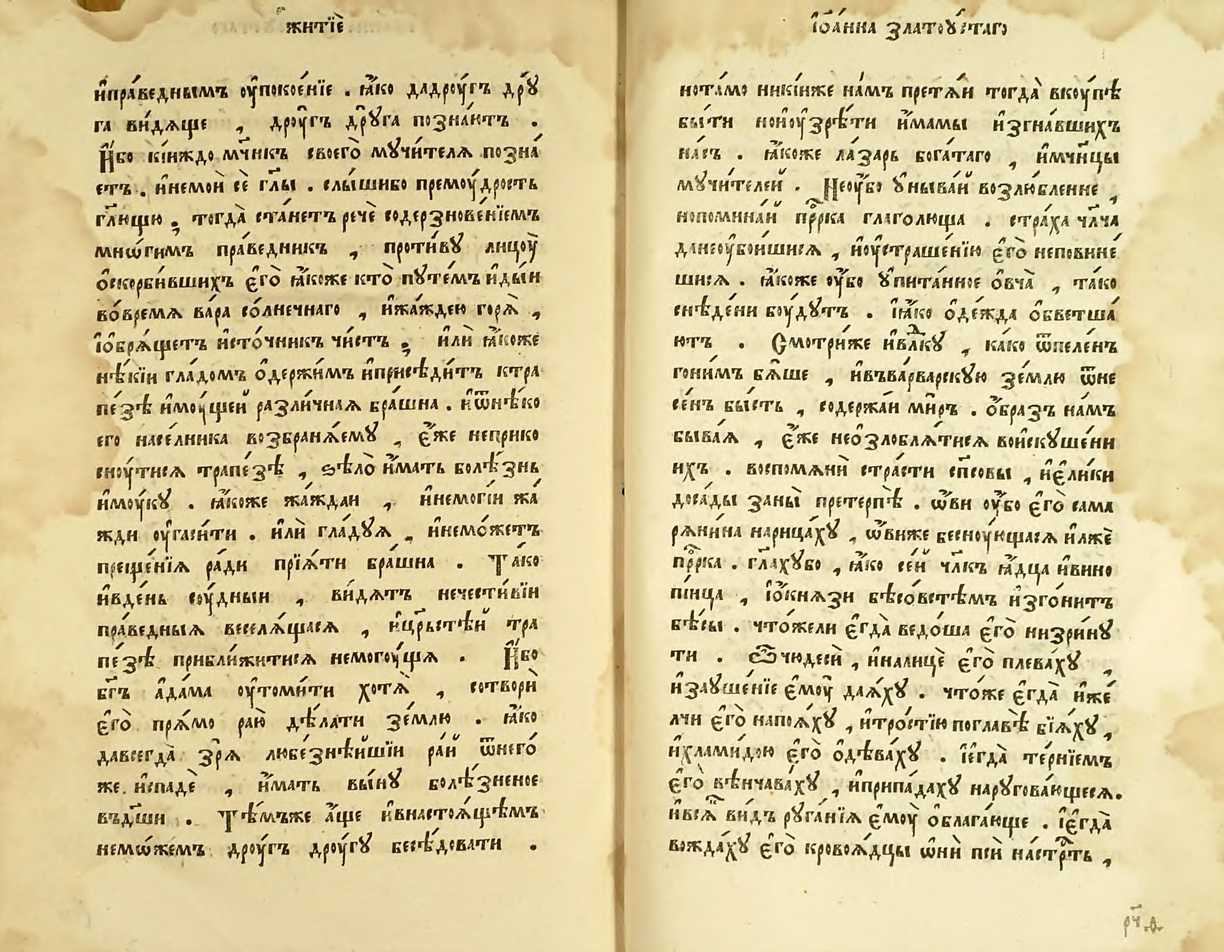 житїѐ
и҆пра́веднымъ оу҆покое́нїе . ꙗ҆́ко дадроу́гъ дрꙋ́
га ви́дѧще , дроу́гъ дрꙋ́га позна́ютъ .
И҆́бо кїи́ждо мч҃никъ своего̀ мꙋчи́телѧ позна́
етъ . и҆немо́й сѐ гл҃ы . слы́шибо премоу́дрость
гл҃ющꙋ , тогда̀ ста́нетъ речѐ содерзнове́нїемъ
мнѡ́гимъ пра́ведникъ , проти́вꙋ лицоу̀
ѡ҆скорби́вшихъ є҆го̀ ꙗ҆́коже кто̀ пꙋте́мъ и҆ды́и
во́времѧ ва́ра со́лнечнаго , и҆жа́ждею горѧ̀ ,
і҆ѡбрѧ́щетъ и҆сто́чникъ чи́стъ , и҆лѝ ꙗ҆́коже
нѣ́кїи гла́домъ ѡ҆держи́мъ и҆присѣди́тъ ктра
пе́зѣ и҆моу́щей разли́чнаѧ бра́шна . и҆ѿнѣ́ко
его насе́лника возбранѧ́емꙋ , є҆́же неприко
сноу́тисѧ трапе́зѣ , ѕѣло̀ и҆́мать болѣ́знь
и҆моу́кꙋ . ꙗ҆́коже жа́ждаи , и҆немогі́и жа́
жди оу҆гаси́ти . и҆лѝ гла́дꙋѧ , и҆немо́жетъ
преще́нїѧ ра́ди прїѧ́ти бра́шна . Та́ко
и҆вде́нь соу́дныи , ви́дѧтъ нечести́вїи
пра́ведныѧ веселѧ́щасѧ , и҆цр҃ьстѣ́й тра
пе́зѣ прибли́житисѧ немогоу́щѧ . И҆́бо
бг҃ъ а҆да́ма оу҆томи́ти хотѧ̀ , сотворѝ
є҆го̀ прѧ́мо раю̀ дѣ́лати зе́млю . ꙗ҆́ко
давсегда̀ зрѧ̀ любе́знѣйшїи ра́й ѿнего́
же и҆спадѐ , и҆́мать вы́нꙋ болѣ́зненое
въдш҃и . Тѣ́мъже а҆́ще и҆внастоѧ́щѣмъ
немѡ́жемъ дроу́гъ дроу́гꙋ бесѣ́довати .
і҆ѡа́нна златоꙋ́стагѡ
нота́мо никі́иже на́мъ претѧ́и тогда̀ вкоу́пѣ
бы́ти но́иоу҆зрѣ́ти и҆́мамы и҆згна́вшихъ
на́съ . ꙗ҆́коже ла́зарь бога́таго , и҆мч҃нцы
мꙋчи́телей . Неоу҆́бо ꙋ҆ныва́й возлю́бленне ,
нопомина́й прⷪ҇рка глаго́люща . стра́ха чл҃ча
данеоу҆бои́шисѧ , и҆оу҆страше́нїю є҆го̀ неповине́
шисѧ . ꙗ҆́коже оу҆́бо ꙋ҆пита́нное о҆вча̀ , та́ко
снѣ́дени боу́дꙋтъ . і҆ꙗ҆́ко ѻ҆де́жда ѡ҆бветша́
ютъ . Смотри́же и҆влⷣкꙋ , ка́ко ѿпеле́нъ
гони́мъ бѧ́ше , и҆въва́рварскꙋю зе́млю ѿне
се́нъ бы́сть , содержа́и ми́ръ . ѻ҆́бразъ на́мъ
быва́ѧ , є҆́же неѡ҆злоблѧ́тисѧ воискꙋше́ни
ихъ . воспомѧнѝ стра́сти сп҃совы , и҆є҆ли́ки
доса́ды заны̀ претерпѣ̀ . ѡ҆́ви оу҆́бо є҆го̀ сама
рѧни́на нарица́хꙋ , ѡ҆́виже бесноу́ющасѧ и҆лже́
прⷪ҇рка . гл҃ахꙋбо , ꙗ҆́ко се́й чл҃къ ꙗ҆дца̀ и҆вино
пі́ица , і҆ѻ҆кнѧ́зи бѣсо́встѣмъ и҆зго́нитъ
бѣ́сы . что́жели є҆гда̀ ведо́ша є҆го̀ низри́нꙋ
ти . Ѽчюде́сѝ , и҆налицѐ є҆го̀ плева́хꙋ ,
и҆заꙋше́нїе є҆моу̀ даѧ́хꙋ . что́же є҆гда̀ и҆же́
лчи є҆го̀ напоѧ́хꙋ , и҆тро́стїю поглавѣ̀ бїѧ́хꙋ ,
и҆хлами́дою є҆го̀ ѡ҆дѣва́хꙋ . і҆є҆гда̀ те́рнїемъ
є҆го̀ вѣнчава́хꙋ , и҆припа́дахꙋ нарꙋгова́ющесѧ .
и҆ве́сѧ ви́дъ рꙋга́нїѧ є҆моу̀ ѡ҆блага́юще . і҆є҆гда̀
вожда́хꙋ є҆го̀ кровоѧ́дцы ѡ҆нѝ псѝ настрⷭ҇ть ,